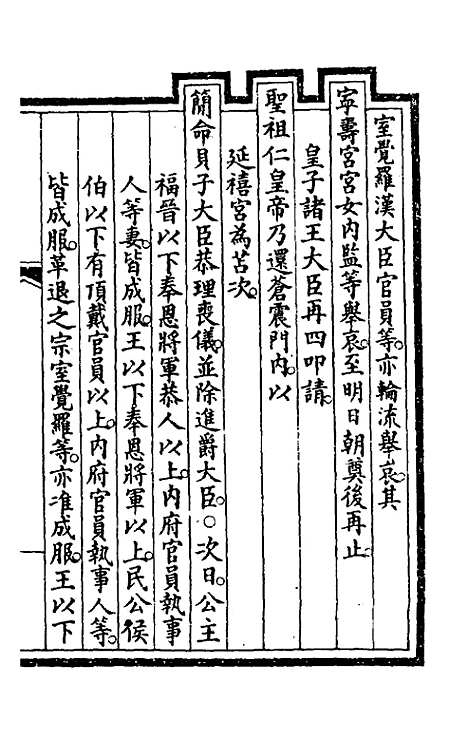 室覺羅漢大臣官員等。亦輪流舉哀。其
寧壽宮宮女内監等舉哀。至明日朝奠後再止。
皇子諸王大臣再四叩請。
聖祖仁皇帝乃還蒼震門内。以
延禧宮為苫次。
簡命貝子大臣恭理喪儀。並除進爵大臣。○次日。公主
福晉以下奉恩將軍恭人以上。内府官員執事
人等妻。皆成服。王以下奉恩將軍以上。民公侯
伯以下有頂戴官員以上。内府官員執事人等。
皆成服。革退之宗室覺羅等。亦准成服。王以下